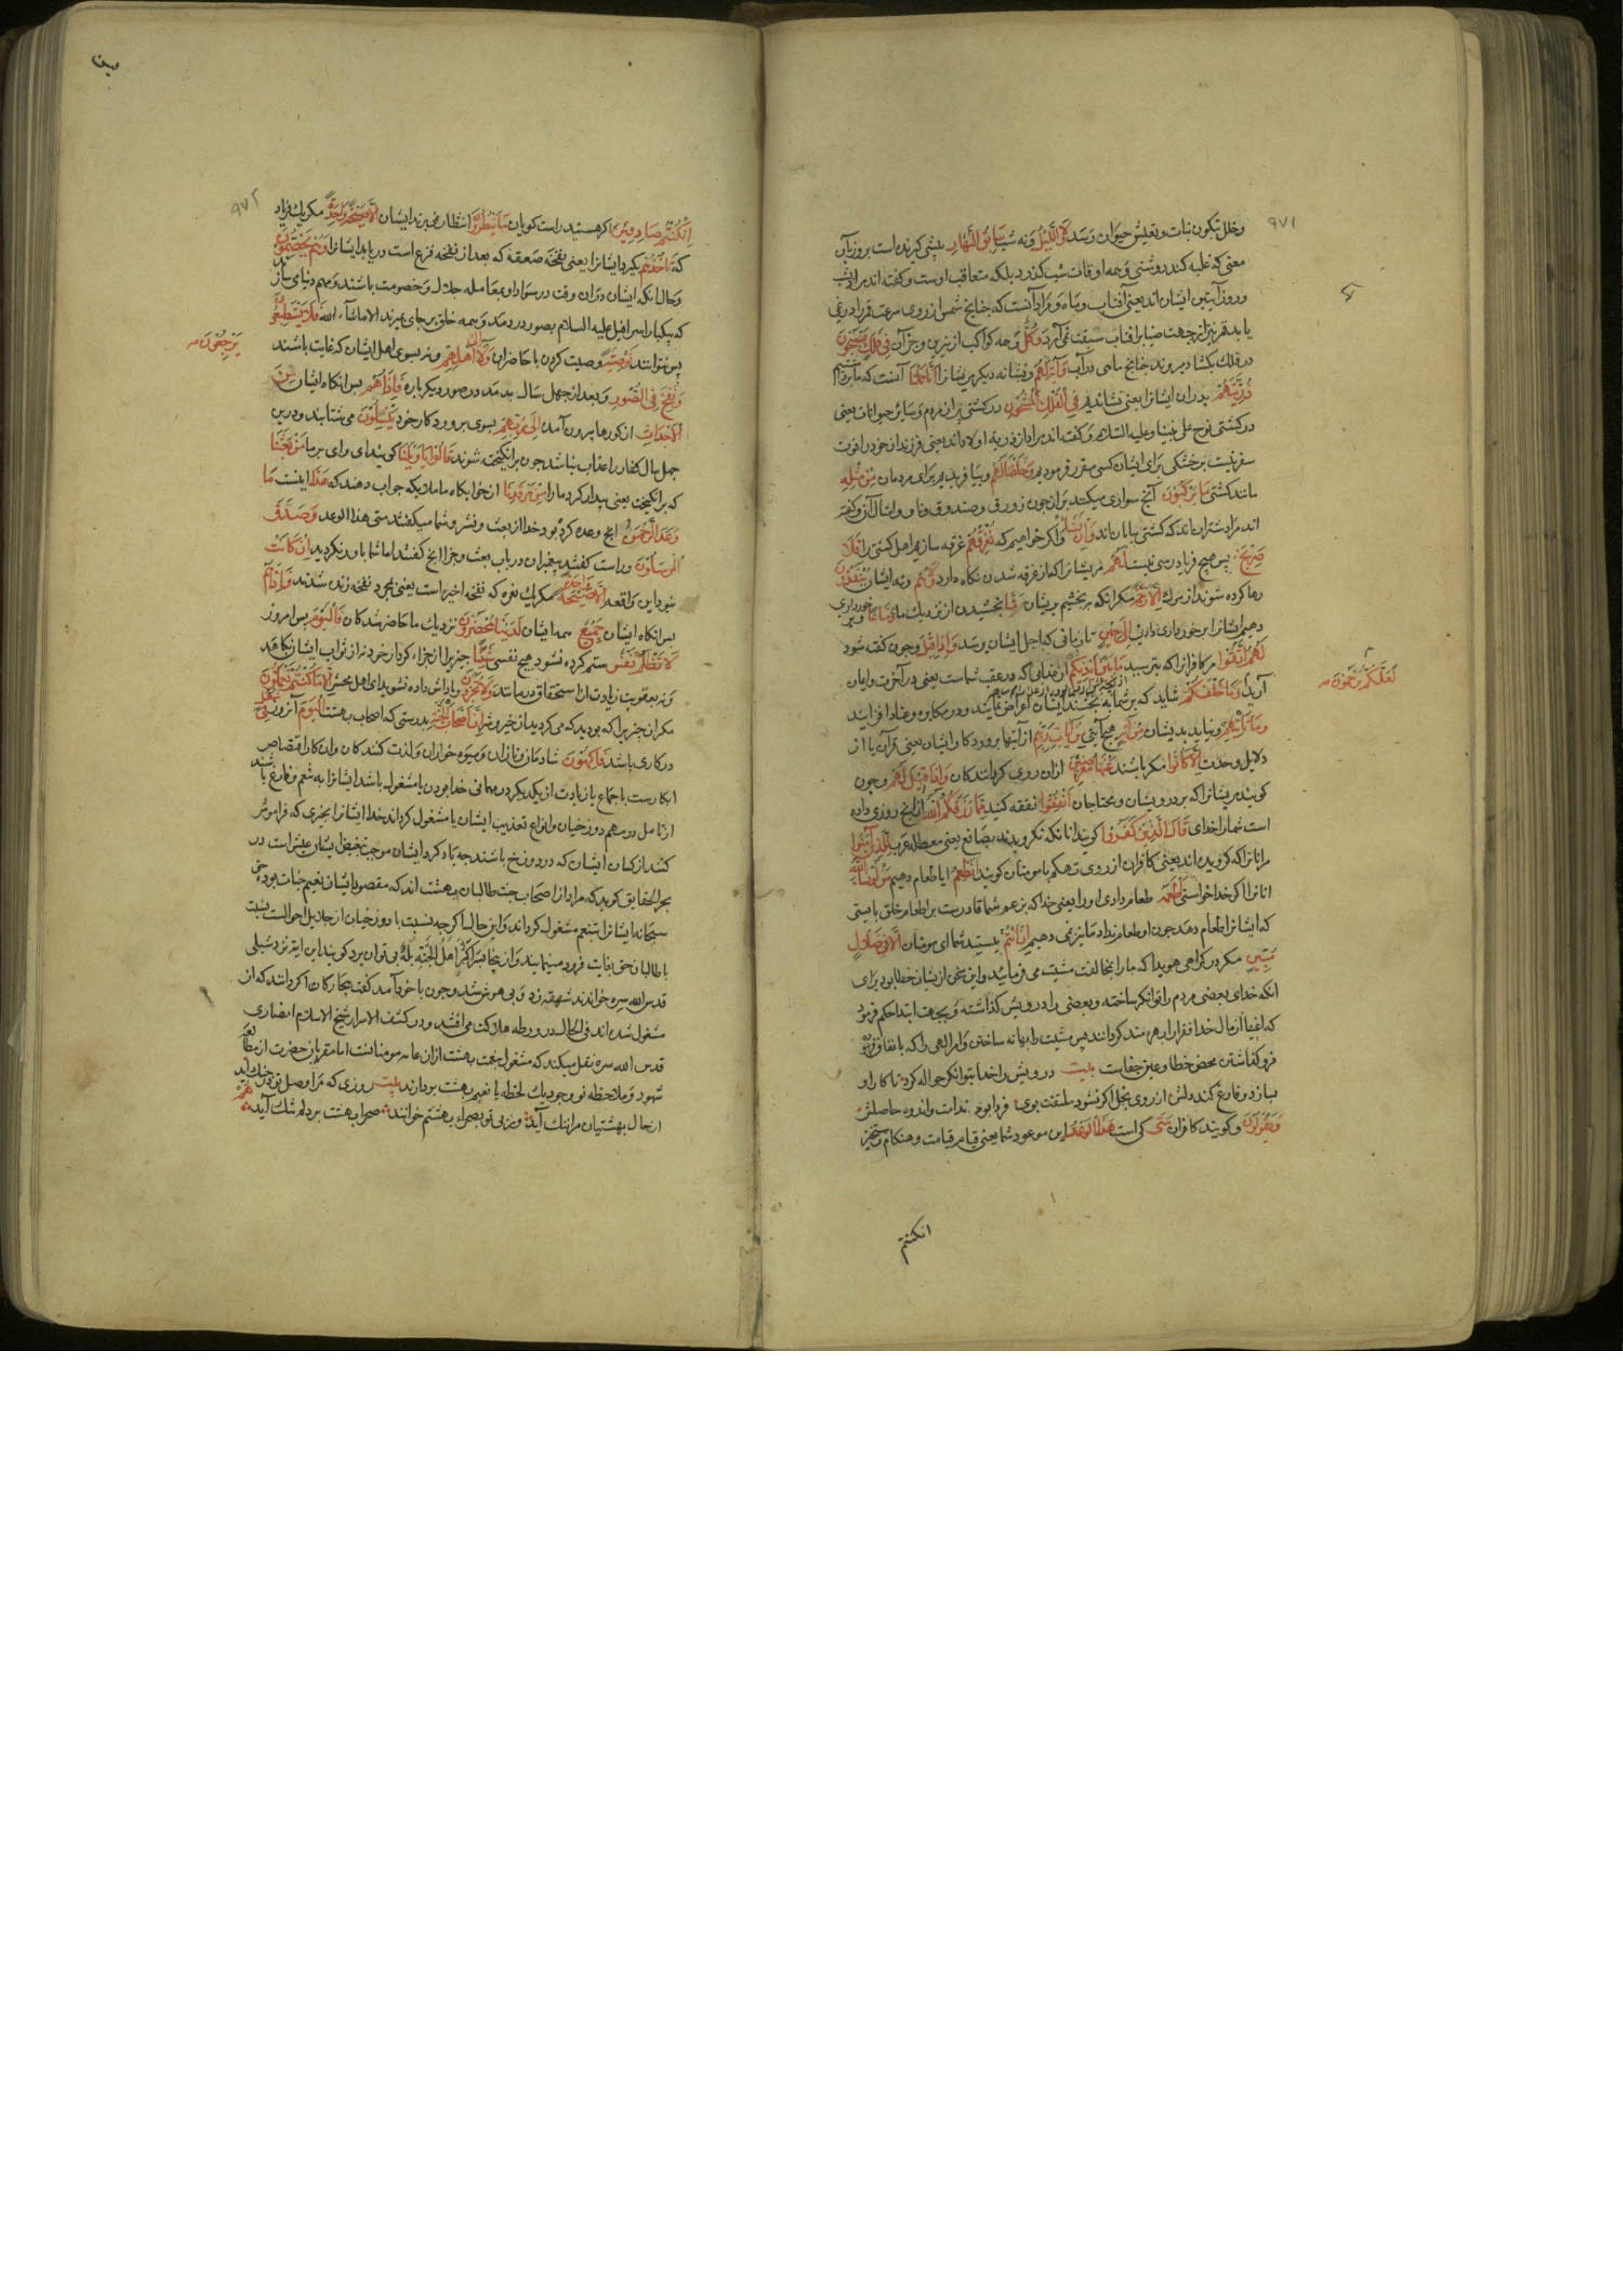 ۹۷۱
وخلل بتکون نبات وتعیش حیوان رسد وَلَا اللَّيْلُ ونه شب سَابِقُ النَّهَارِ پیشی کیرنده است بروز بآن
معنی که غلبه کند روشنی وهمه اوقات شب کذرد بلکه متعاقب اوست وکفته اند مراد شب
وروز آیتین ایشان اند یعنی آفتاب وماه ومراد آنست که چنانچ شمس از روی سرعت قمر را در نمی
یابد قمر نیز از جهت ضیا بر افتاب سبقت نمی آرد وَكُلٌّ وهمه کواکب از نیرین وجز آن فِي فَلَكٍ يَسْبَحُونَ
در فلک بکشاد میروند چنانچ ماهی در آب وَآيَةٌ لَهُمْ ونشانه دیکر مریشانرا أَنَّا حَمَلْنَا آنست که ما برداشتیم
ذُرِّيَّتَهُمْ پدران ایشانرا یعنی نشاندیم فِي الْفُلْكِ الْمَشْحُونِ در کشتی پر از مردم وسایر حیوانات یعنی
در کشتی نوح علی نبینا وعلیه السلام وکفته اند مراد از ذریه اولاداند یعنی فرزندان خود را قوت
سفر نیست بر خشکی برای ایشان کشتی مقرر فرمودیم وَخَلَقْنَا لَهُمْ وبیافریدیم برای مردمان مِنْ مِثْلِهِ
مانند کشتی مَا يَرْكَبُونَ آنچ سواری میکنند بران چون زورق وصندوق وناو وامثال آن وکفته
اند مراد شتران اند که کشتی بیابان اند وَإِنْ نَشَأْ واکر خواهیم که نُغْرِقْهُمْ غرقه سازیم اهل کشتی را فَلَا
صَرِيخَ پس هیچ فریاد رسی نیست لَهُمْ مریشانرا که از غرقه شدن نکاه دارد وَلَا هُمْ ونه ایشان يُنْقَذُونَ
رها کرده شوند از مرک إِلَّا رَحْمَةً مکر انکه ببخشیم بریشان مِنَّا بخشیدن از نزدیک ما وَمَتَاعًا وبرخورداری
دهیم ایشانرا برخورداری دادن إِلَى حِينٍ تا زمانی که اجل ایشان رسد وَإِذَا قِيلَ وچون کفته شود
لَهُمُ اتَّقُوا مر کافرانرا که بترسید مَا بَيْنَ أَيْدِيكُمْ
وَمَا خَلْفَكُمْ
لَعَلَّكُمْ تُرْحَمُونَ
وَمَا تَأْتِيهِمْ ونیاید بدیشان مِنْ آيَةٍ هیچ آیتی مِنْ آيَاتِ رَبِّهِمْ از آیتها پروردکار ایشان یعنی قرآن یا از
دلایل وحدت إِلَّا كَانُوا مکر باشند عَنْهَا مُعْرِضِينَ ازان روی کردانندکان وَإِذَا قِيلَ لَهُمْ وچون
کویند مریشانرا که بر درویشان ومحتاجان أَنْفِقُوا نفقه کنید مِمَّا رَزَقَكُمُ اللَّهُ ازانچ روزی داده
است شمارا خدای قَالَ الَّذِينَ كَفَرُوا کویند انانکه نکرویدند بصانع یعنی معطله عرب لِلَّذِينَ آمَنُوا
مرانانرا که کرویده اند یعنی کافران از روی تهکم با مومنان کویند أَنُطْعِمُ ایا طعام دهیم مَنْ لَوْ يَشَاءُ اللَّهُ
انانرا اکر خدا خواستی أَطْعَمَهُ طعام دادی اورا یعنی خدا که بزعم شما قادرست بر اطعام خلق بایستی
که ایشانرا طعام دهد چون او طعام نداد ما نیز نمی دهیم إِنْ أَنْتُمْ نیستید شما ای مومنان إِلَّا فِي ضَلَالٍ
مُبِينٍ مکر در کمراهی هویدا که مارا بخالفت مشیت می فرمائید واین سخن ازیشان خطا بود برای
انکه خدای بعضی مردم را توانکر ساخته وبعضی را درویش کذاشته وبجهت ابتلا حکم فرموده
که اغنیا از مال خدا فقرارا بهره مند کردانند پس مشیت را بهانه ساختن وامر الهی را که بانفاق فرموده
فرو کذاشتن محض خطا وعین جفاست بیت درویش را خدا بتوانکر حواله کرد تا کار او
بسازد وفارغ کند دلش از روی بخل اکر نشود ملتفت بوی فردا بود ندامت واندوه حاصلش
وَيَقُولُونَ وکویند کافران مَتَى کی است هَذَا الْوَعْدُ این موعود شما یعنی قیام قیامت وهنکام رستخیز
انکنتم
۹۷۲
إِنْ كُنْتُمْ صَادِقِينَ اکر هستید راست کویان مَا يَنْظُرُونَ انتظار نمی برند ایشان إِلَّا صَيْحَةً وَاحِدَةً مکر یک فریاد
که تَأْخُذُهُمْ بکیرد ایشانرا یعنی نفخه صعقه که بعد از نفخه فزع است دریابد ایشانرا وَهُمْ يَخِصِّمُونَ
وحال انکه ایشان دران وقت در سودا ومعامله جدال وخصومت باشند ومهم دنیا می سازند
که یکبار اسرافیل علیه السلام بصور دردمد وهمه خلق بر جای بمیرند الا ماشاء الله فَلَا يَسْتَطِيعُونَ
پس نتوانند تَوْصِيَةً وصیت کردن با حاضران وَلَا إِلَى أَهْلِهِمْ ونه بسوی اهل ایشان که غایب باشند يَرْجِعُونَ
وَنُفِخَ فِي الصُّورِ وبعد از چهل سال بدمند در صور دیکر باره فَإِذَا هُمْ پس انکاه ایشان مِنَ
الْأَجْدَاثِ از کورها بیرون آمده إِلَى رَبِّهِمْ بسوی پروردکار خود يَنْسِلُونَ می شتابند ودرین
چهل سال کفار را عذاب نباشد چون برانکیخته شوند قَالُوا يَا وَيْلَنَا کویند ای وای بر ما مَنْ بَعَثَنَا
که برانکیخت یعنی بیدار کرد مارا مِنْ مَرْقَدِنَا از خوابکاه ما ملائکه جواب دهند که هَذَا اینست مَا
وَعَدَ الرَّحْمَنُ انچ وعده کرده بود خدا از بعث ونشر وشما میکفتید متی هذا الوعد وَصَدَقَ
الْمُرْسَلُونَ وراست کفتند پیغمبران در باب بعث وجزا انچ کفتند اما شما باور نکردید إِنْ كَانَتْ
نبود این واقعه إِلَّا صَيْحَةً وَاحِدَةً مکر یک نعره که نفخه اخیر است یعنی بمجرد نفخه زنده شدند فَإِذَا هُمْ
پس انکاه ایشان جَمِيعٌ همه ایشان لَدَيْنَا مُحْضَرُونَ نزدیک ما حاضر شدکان فَالْيَوْمَ پس امروز
لَا تُظْلَمُ نَفْسٌ ستم کرده نشود هیچ نفسی شَيْئًا چیزیرا از جزاء کردار خود نه از ثواب ایشان بکاهد
ونه بعقوبت زیادت از استحقاق درمانند وَلَا تُجْزَوْنَ وپاداش داده نشوید ای اهل محشر إِلَّا مَا كُنْتُمْ تَعْمَلُونَ
مکر ان چیزیرا که بودید که می کردید از خیر وشر إِنَّ أَصْحَابَ الْجَنَّةِ بدرستی که اصحاب بهشت الْيَوْمَ آنروز فِي شُغُلٍ
در کاری باشند فَاكِهُونَ شادمان ونازان ومیوه خواران ولذت کنندکان وان کار افتضاض
ابکارست یا جماع یا زیادت از یکدیکر در مهمانی خدا بودن یا مشغول باشند ایشانرا به نعیم وفارغ باشند
ازتامل در مهم دوزخیان وانواع تعذیب ایشان یا مشغول کرداند خدا ایشانرا بچیزی که فراموش
کنند از کسان ایشان که در دوزخ باشند چه یاد کرد ایشان موجب تنغیص ایشان عیش است در
بحر الحقایق کوید که مراد از اصحاب جنت طالبان بهشت اند که مقصود ایشان نعیم جنات بود حق
سبحانه ایشانرا بتنعم مشغول کرداند واین حال اکرچه نسبت با دوزخیان از جلایل احوالست نسبت
با طالبان حق بغایت فرود مینماید واز ینجا سر اکثر اهل الجنة بله پی توان برد کویند این ایه نزد شبلی
قدس الله سره خواندند شهقه زد وبی هوش شد وچون با خود آمد کفت بیچارکان اکر دانند که از
مشغول شده اند فی الحال در ورطه هلاکت می افتند ودر کشف الاسرار شیخ الاسلام انصاری
قدس الله سره نقل میکند که مشغول نعمت بهشت ازان عامه مومنانست اما مقربان حضرت از مطالعه
شهود وملاحظه نور وجود یک لحظه با نعیم بهشت نپردازند بیت روزی که مرا وصل تو در چنک آید
از حال بهشتیان مرا ننک آید وربی تو بصحرای بهشتم خوانند صحرای بهشت بر دلم تنک آید هُمْ